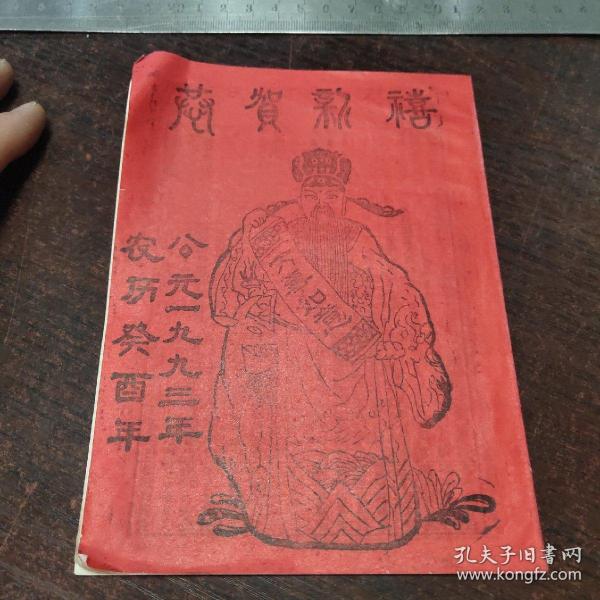 恭贺新禧
公元一九九三年
农历癸酉年
孔夫子旧书网
www.kongfz.com